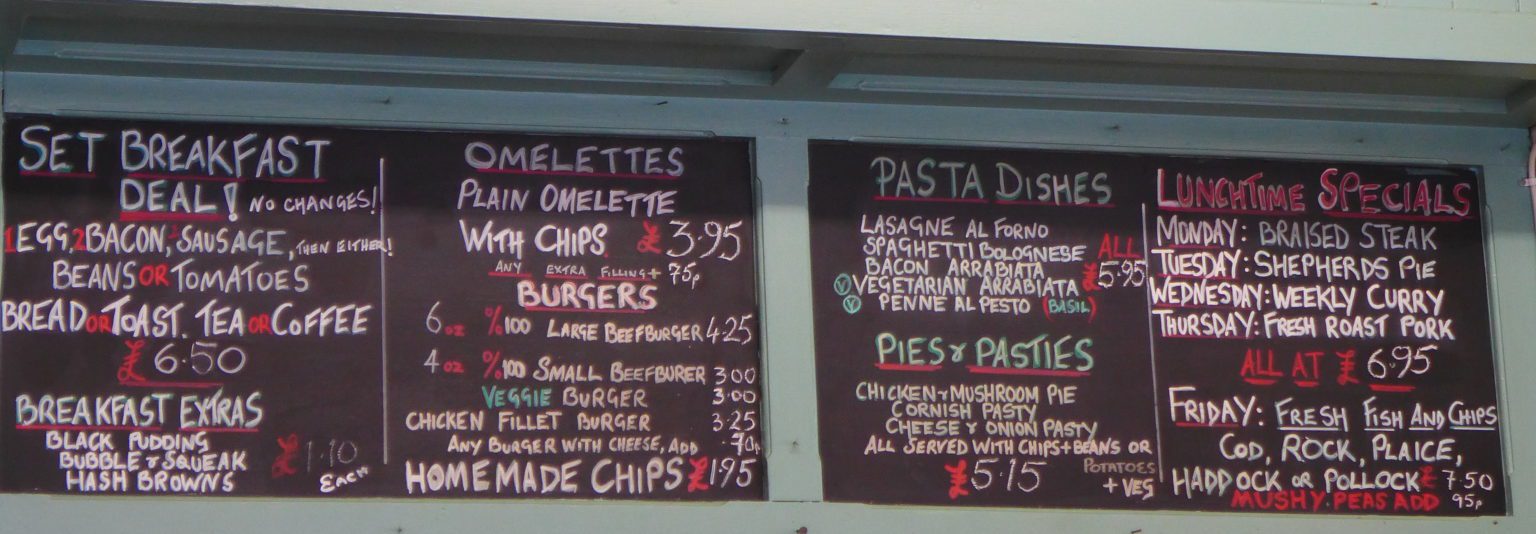 SET BREAKFAST
DEAL! NO CHANGES!
1 EGG, 2 BACON, 1 SAUSAGE, THEN EITHER!
BEANS OR TOMATOES
BREAD OR TOAST. TEA OR COFFEE
£6.50
BREAKFAST EXTRAS
BLACK PUDDING
BUBBLE & SQUEAK
HASH BROWNS
£1.10
EACH
OMELETTES
PLAIN OMELETTE
WITH CHIPS. £3.95
ANY EXTRA FILLING + 75p
BURGERS
6oz %100 LARGE BEEFBURGER 4.25
4oz %100 SMALL BEEFBURER 3.00
VEGGIE BURGER 3.00
CHICKEN FILLET BURGER 3.25
ANY BURGER WITH CHEESE, ADD .70p
HOMEMADE CHIPS £1.95
PASTA DISHES
LASAGNE AL FORNO
SPAGHETTI BOLOGNESE ALL
BACON ARRABIATA £5.95
V VEGETARIAN ARRABIATA
V PENNE AL PESTO (BASIL)
PIES & PASTIES
CHICKEN & MUSHROOM PIE
CORNISH PASTY
CHEESE & ONION PASTY
ALL SERVED WITH CHIPS + BEANS OR
£5.15 POTATOES
+ VEG
LUNCHTIME SPECIALS
MONDAY: BRAISED STEAK
TUESDAY: SHEPHERDS PIE
WEDNESDAY: WEEKLY CURRY
THURSDAY: FRESH ROAST PORK
ALL AT £6.95
FRIDAY: FRESH FISH AND CHIPS
COD, ROCK, PLAICE,
HADDOCK OR POLLOCK £7.50
MUSHY PEAS ADD 95p